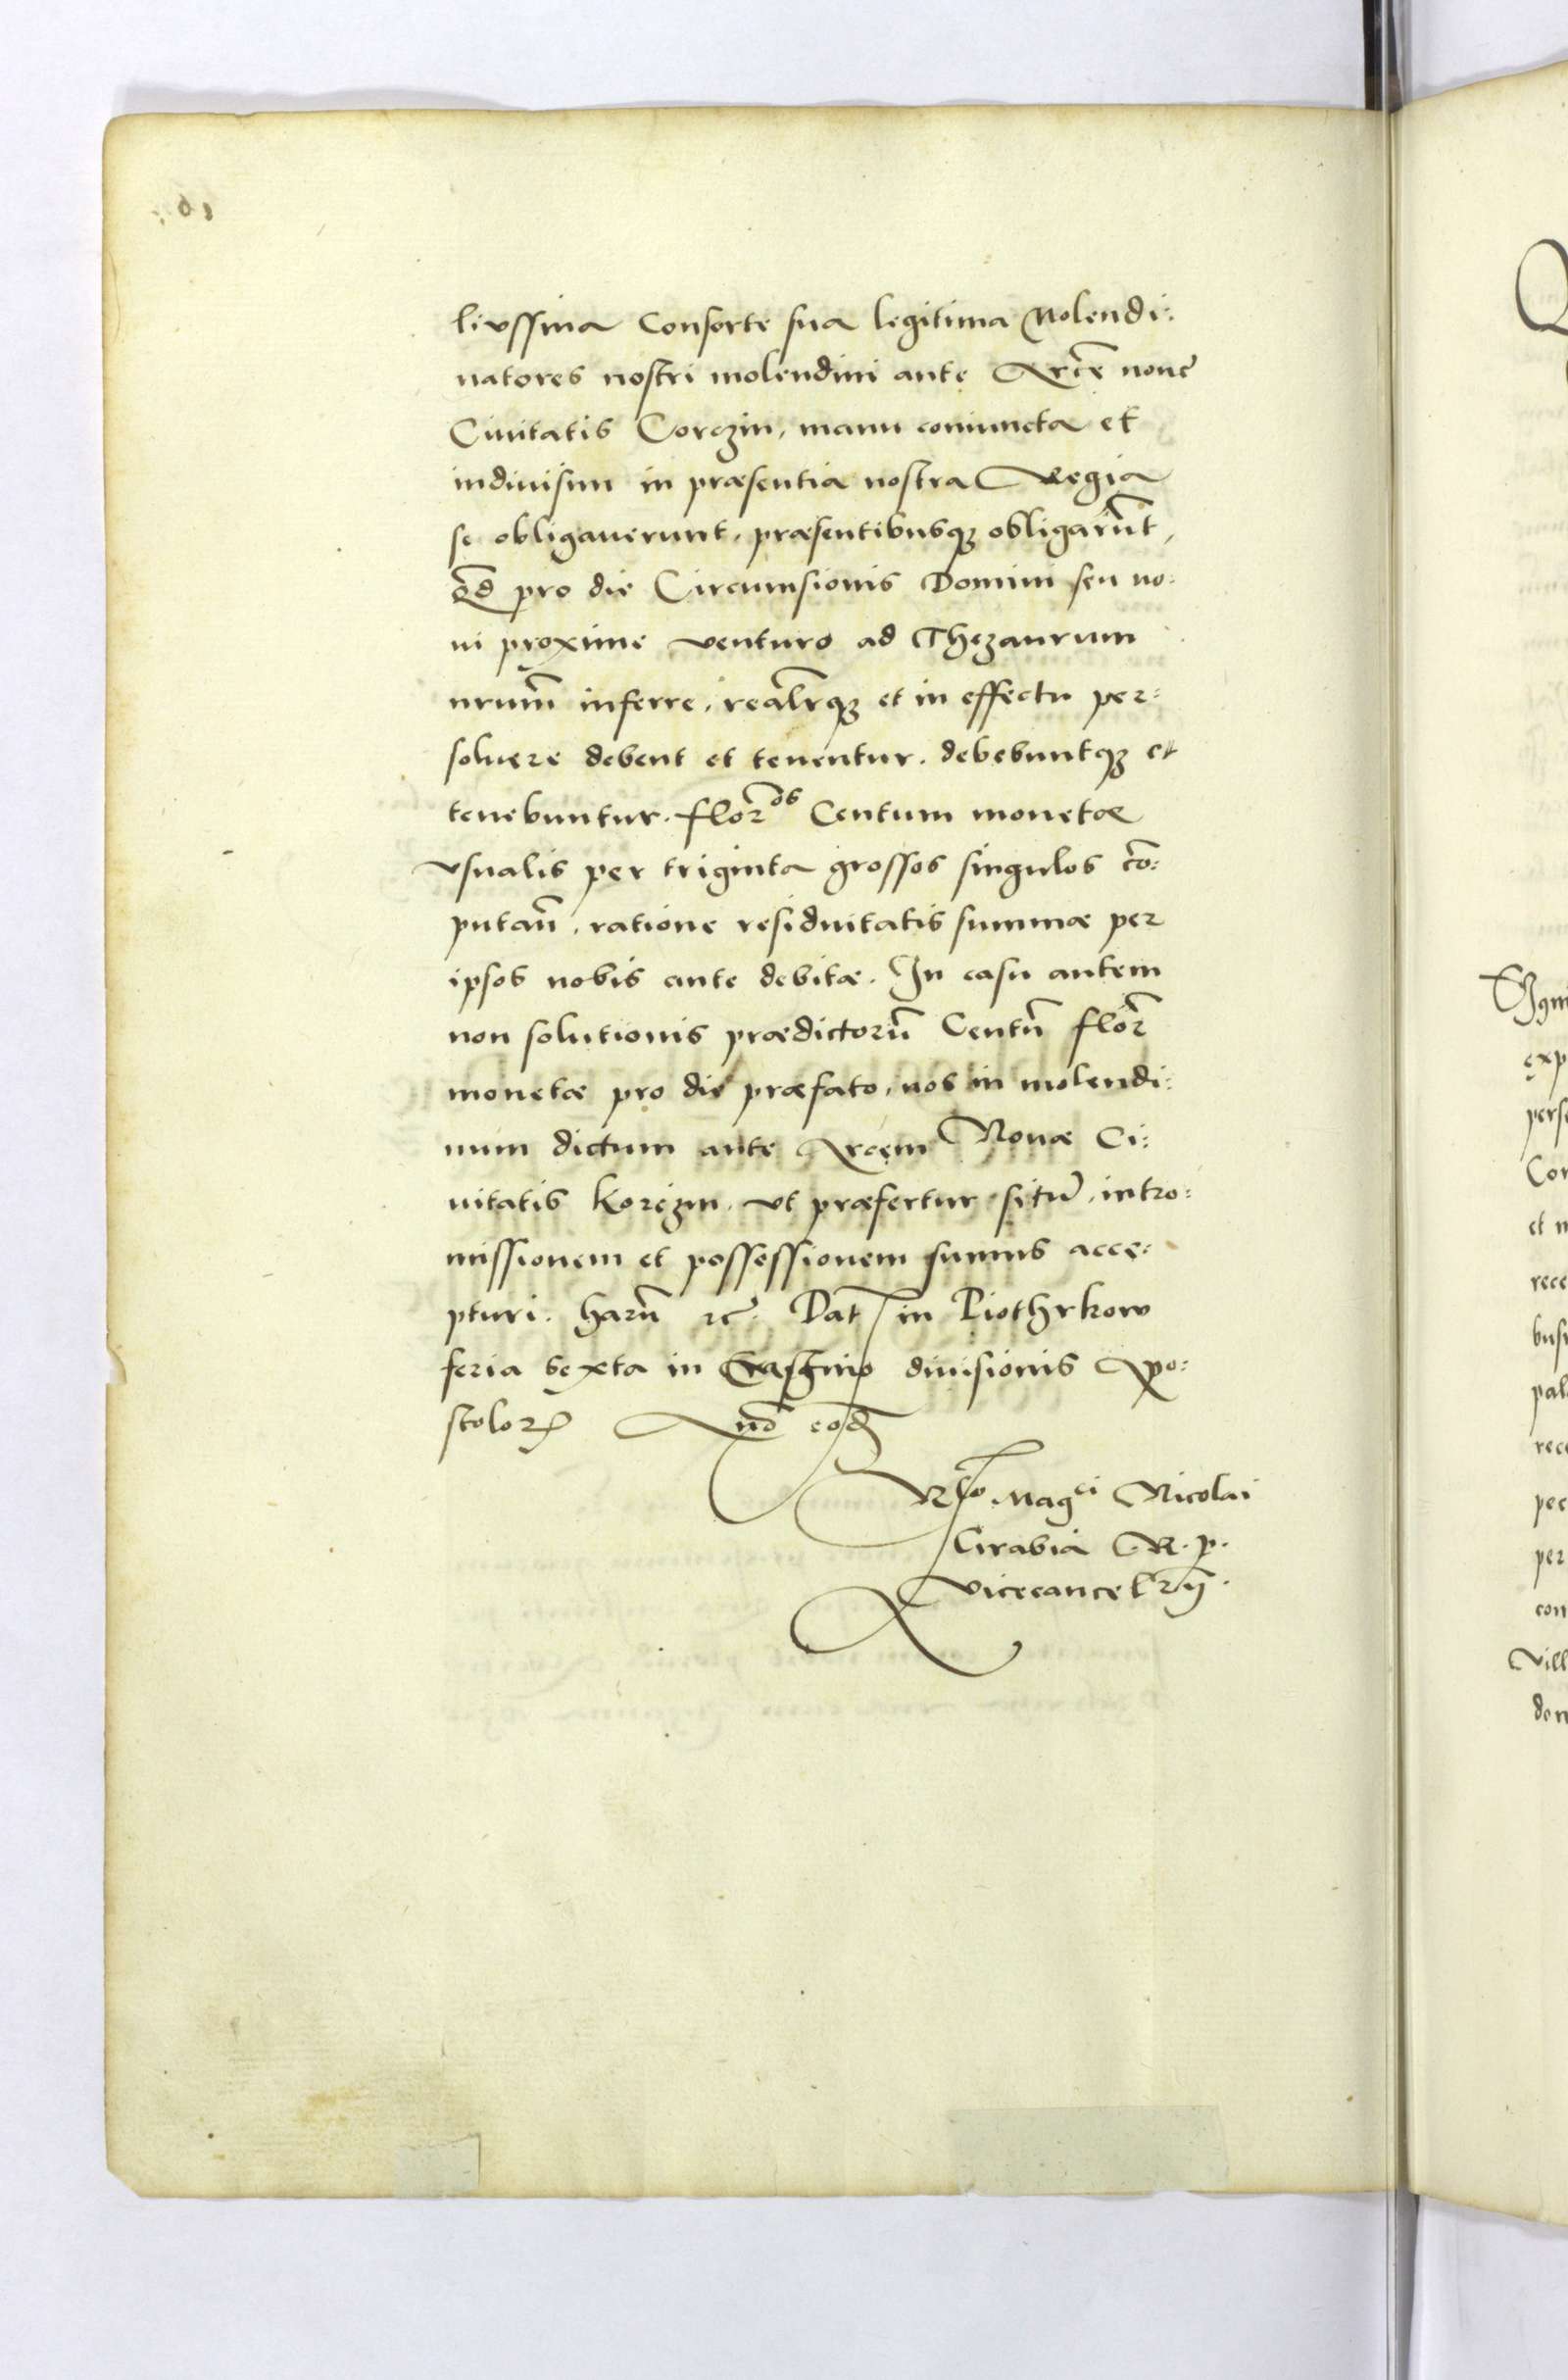 liussina Consorte sua legitima Molendi:
natores nostri molendini ante Arcē nouę
Ciuitatis Corczin, manu coniuncta et
indiuisim in præsentia nostra Regia
se obligauerunt, præsentibusq; obligarūt,
qd pro die Circumsionis Domini seu no:
ui proxime venturo ad Thezaurum
nrum̄ inferre, realr̄q; et in effectu per:
soluere debent et tenentur, debebuntq; et
tenebuntur. flor̄os Centum monetæ
vsualis per triginta grossos singulos cō:
putan̄, ratione residuitatis summæ per
ipsos nobis ante debitæ. In casu autem
non solutionis prædictorū Centū flor̄
monetæ pro die præfato, nos in molendi:
num dictum ante Arcem Nouæ Ci:
uitatis Korczin, vt præfertur situ̅, intro:
missionem et possessionem sumus acce:
pturi. harū rc̄. Dat in Piothrkow
feria sexta in Crastino diuisionis Apo:
stolor Anō eod
Rlo Magci Nicolai
Grabia R. p.
Vicecancelrÿ.
Q
exp
perse
Con
et n
rece
pal
rec
pec
per
con
Vill
don